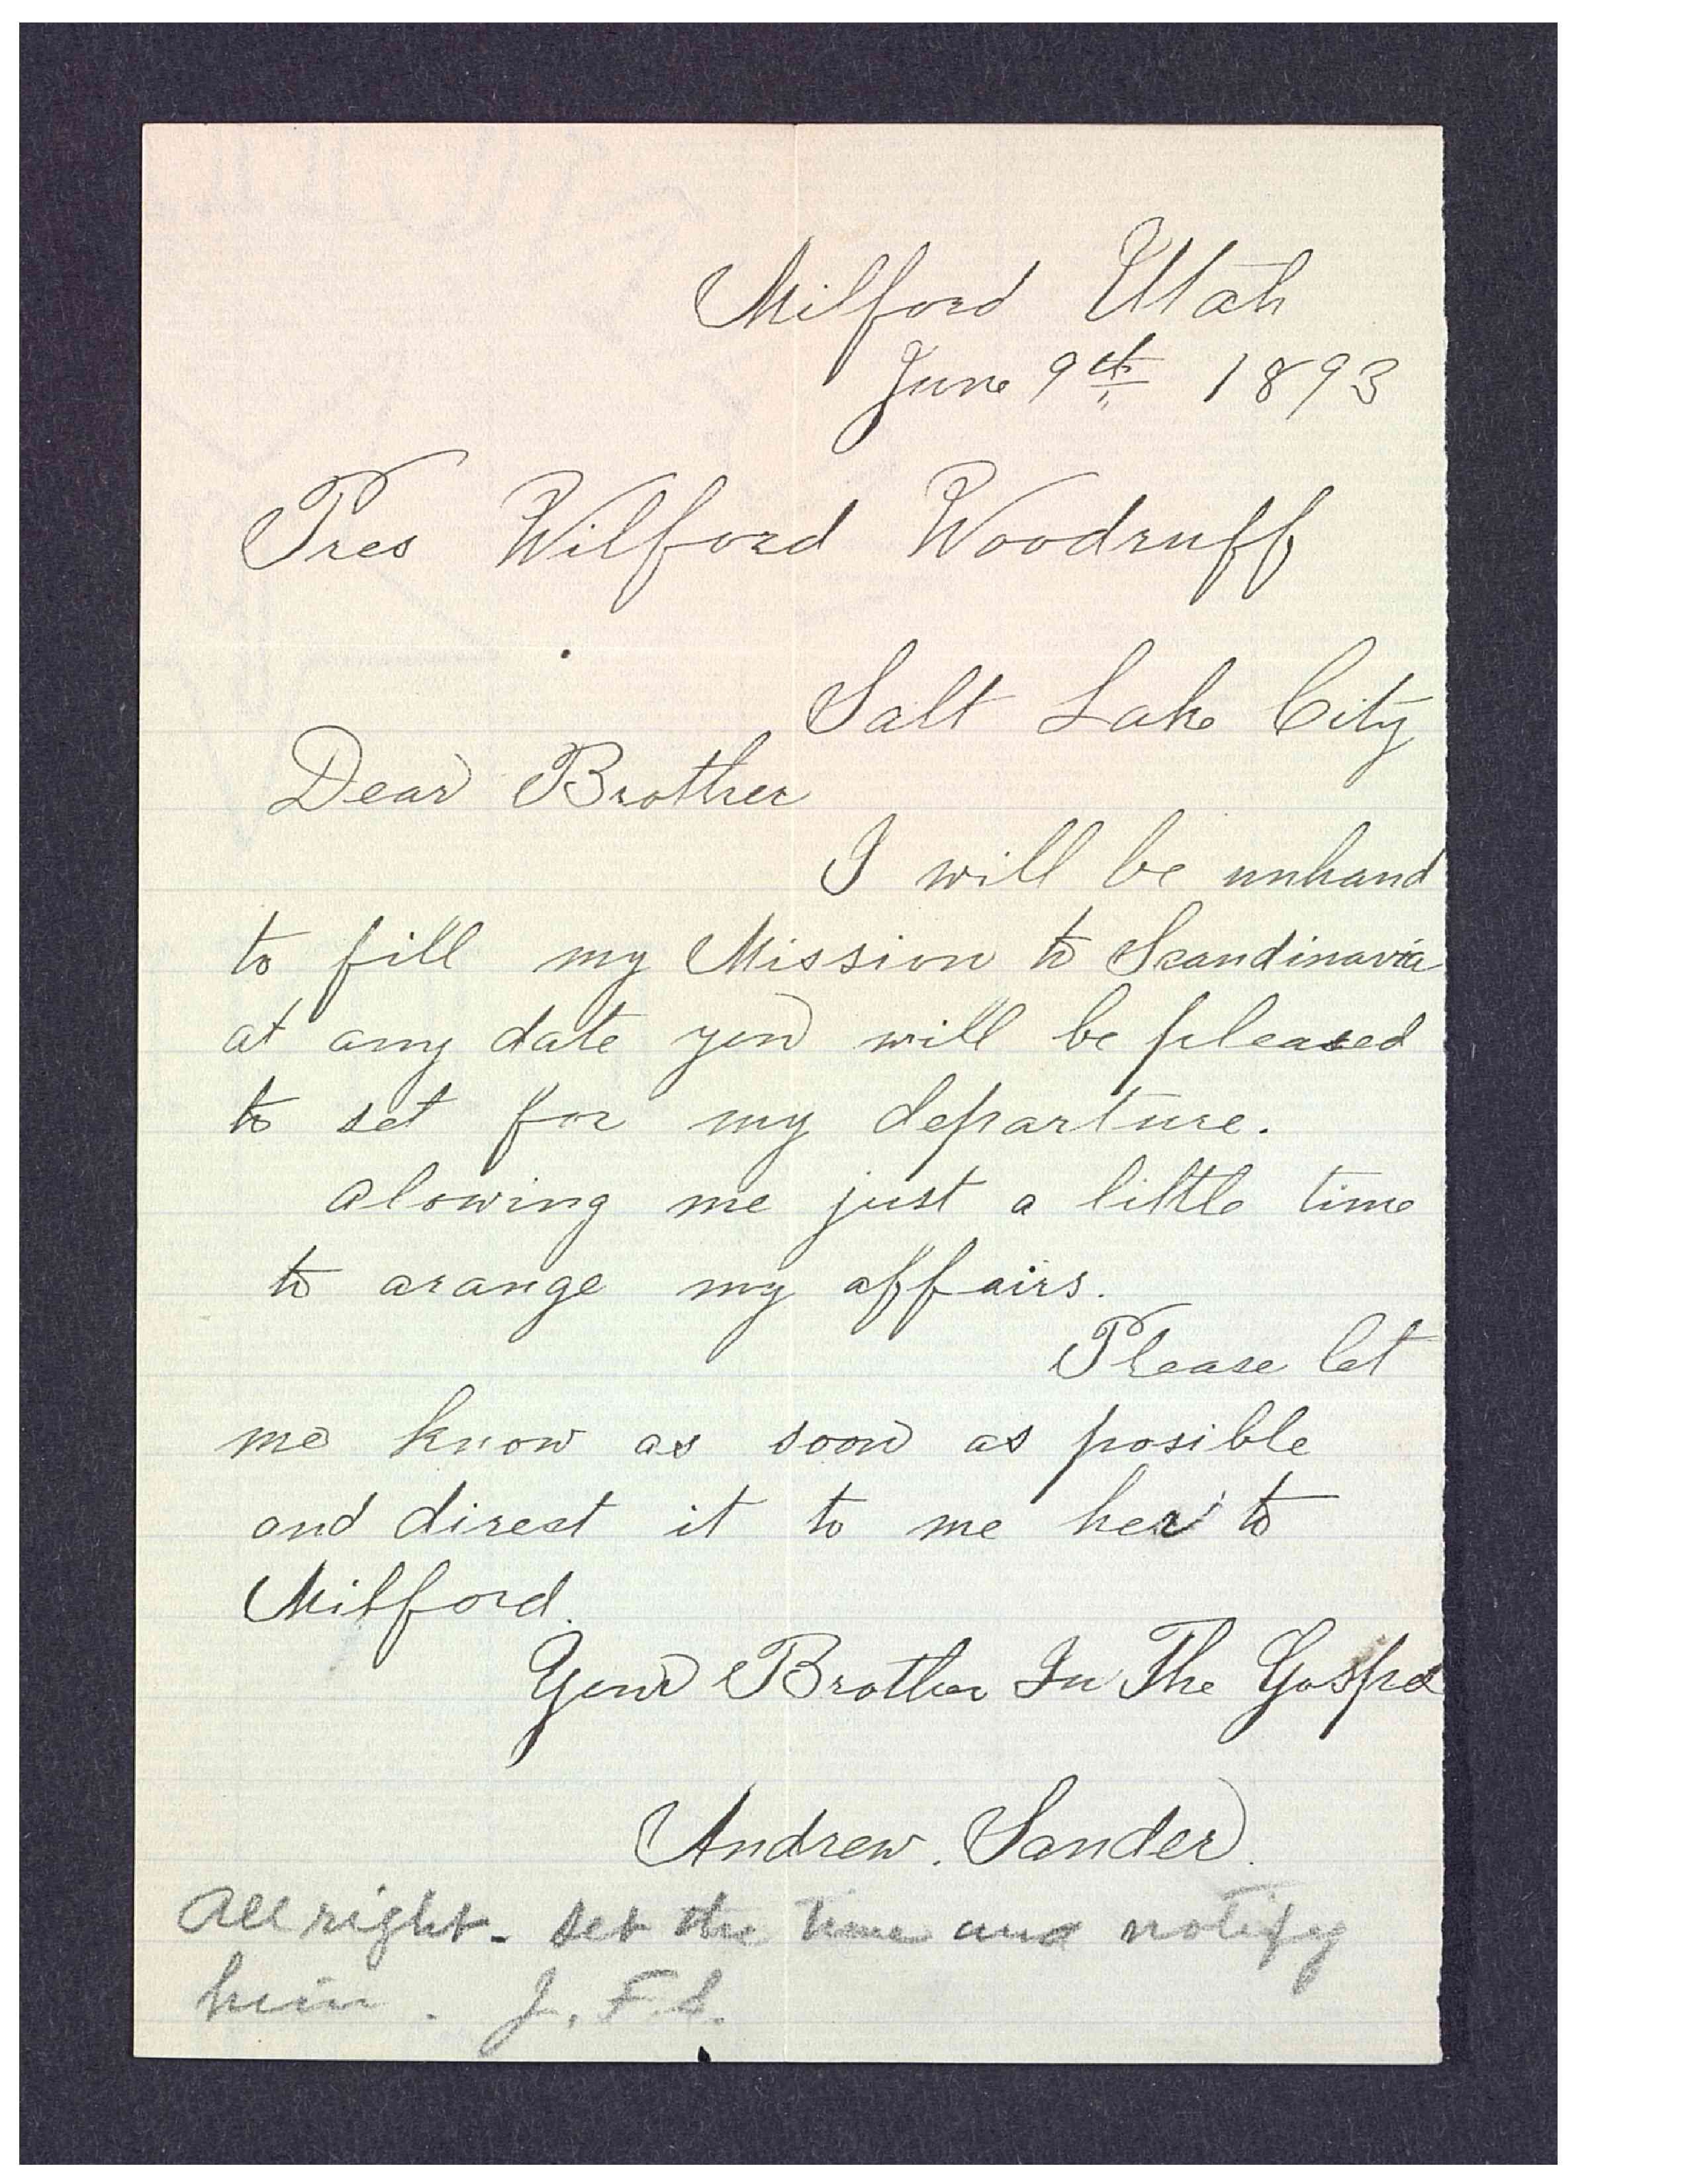 Milford Utah
June 9th 1893
Pres Wilford Woodruff
Salt Lake City
Dear Brother
I will be unhand
to fill my Mission to Scandinavia
at any date you will be pleased
to set for my departure.
alowing me just a little time
to arange my affairs.
Please let
me know as soon as posible
and direct it to me her to
Milford.
Your Brother In The Gospel
Andrew. Sander.
All right - set the time and notify
him. J. F. S.